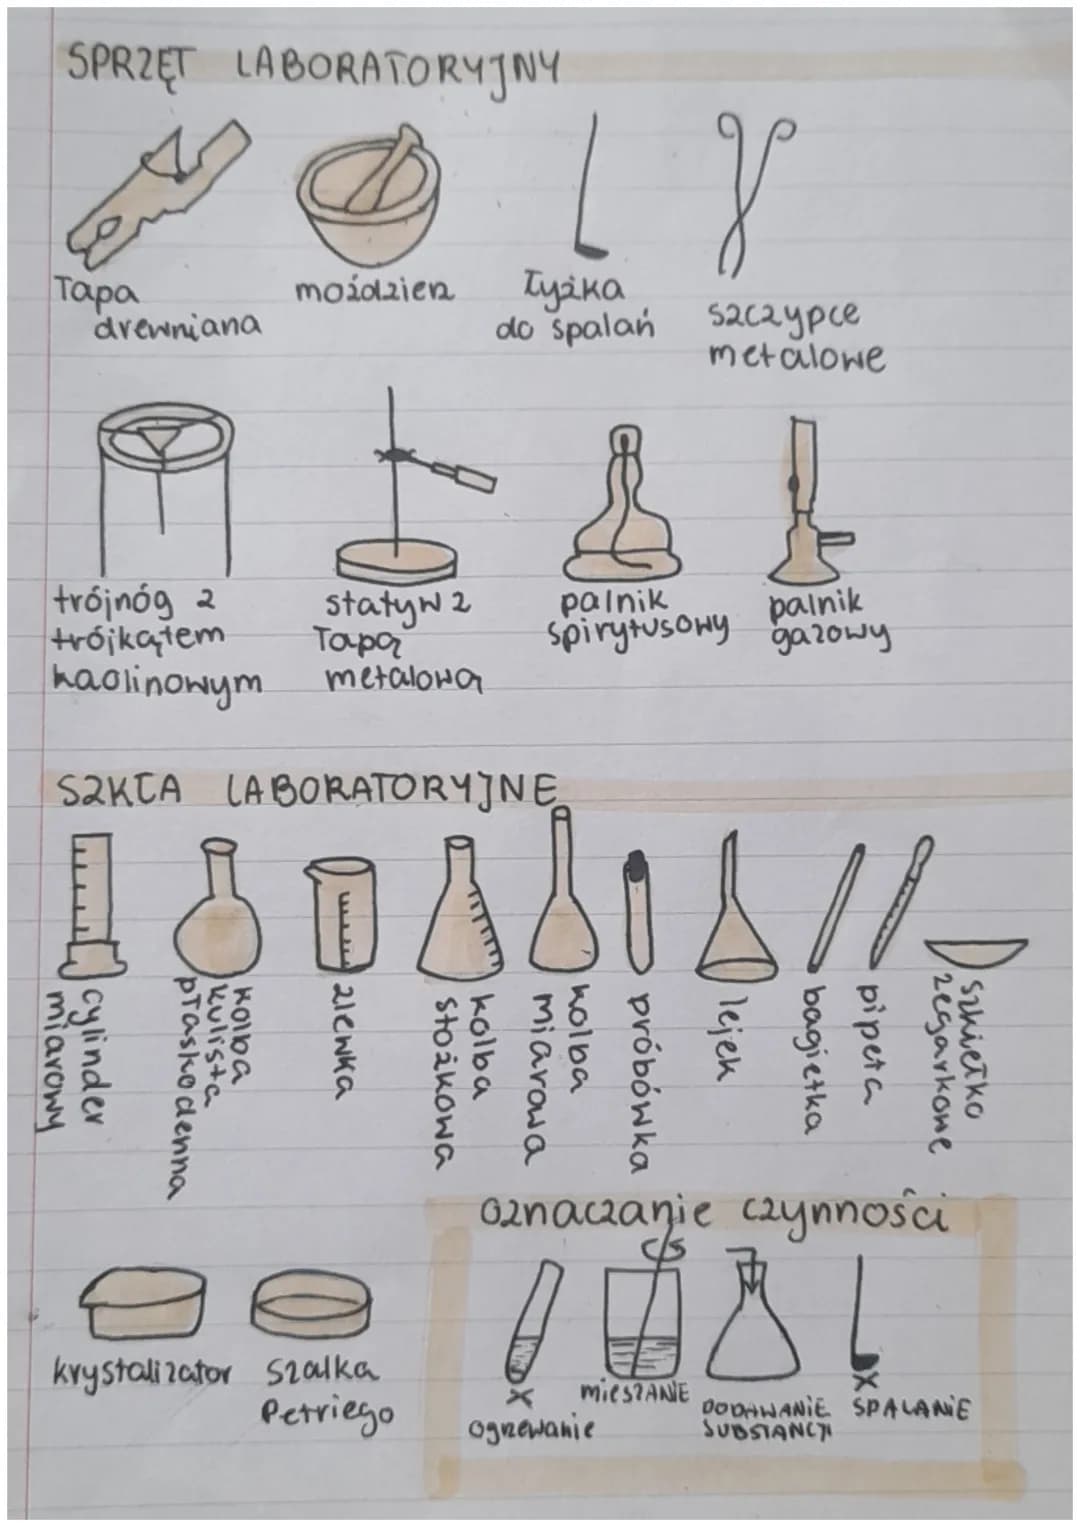 SPRZĘT LABORATORYJNY
Łapa
drewniana
moździerz
Łyżka
do spalań
szczypce
metalowe
trójnóg z
trójkątem
kaolinowym
statyw z
Łapą
metalową
palnik
spirytusowy
palnik
gazowy
SZKŁA LABORATORYJNE
cylinder
miarowy
kolba
kulista
płaskodenna
zlewka
kolba
stożkowa
kolba
miarowa
próbówka
lejek
bagietka
pipeta
szkiełko
zegarkowe
krystalizator
Szalka
Petriego
oznaczanie czynności
ogrzewanie
MIESZANIE
DODAWANIE
SUBSTANCJI
SPALANIE